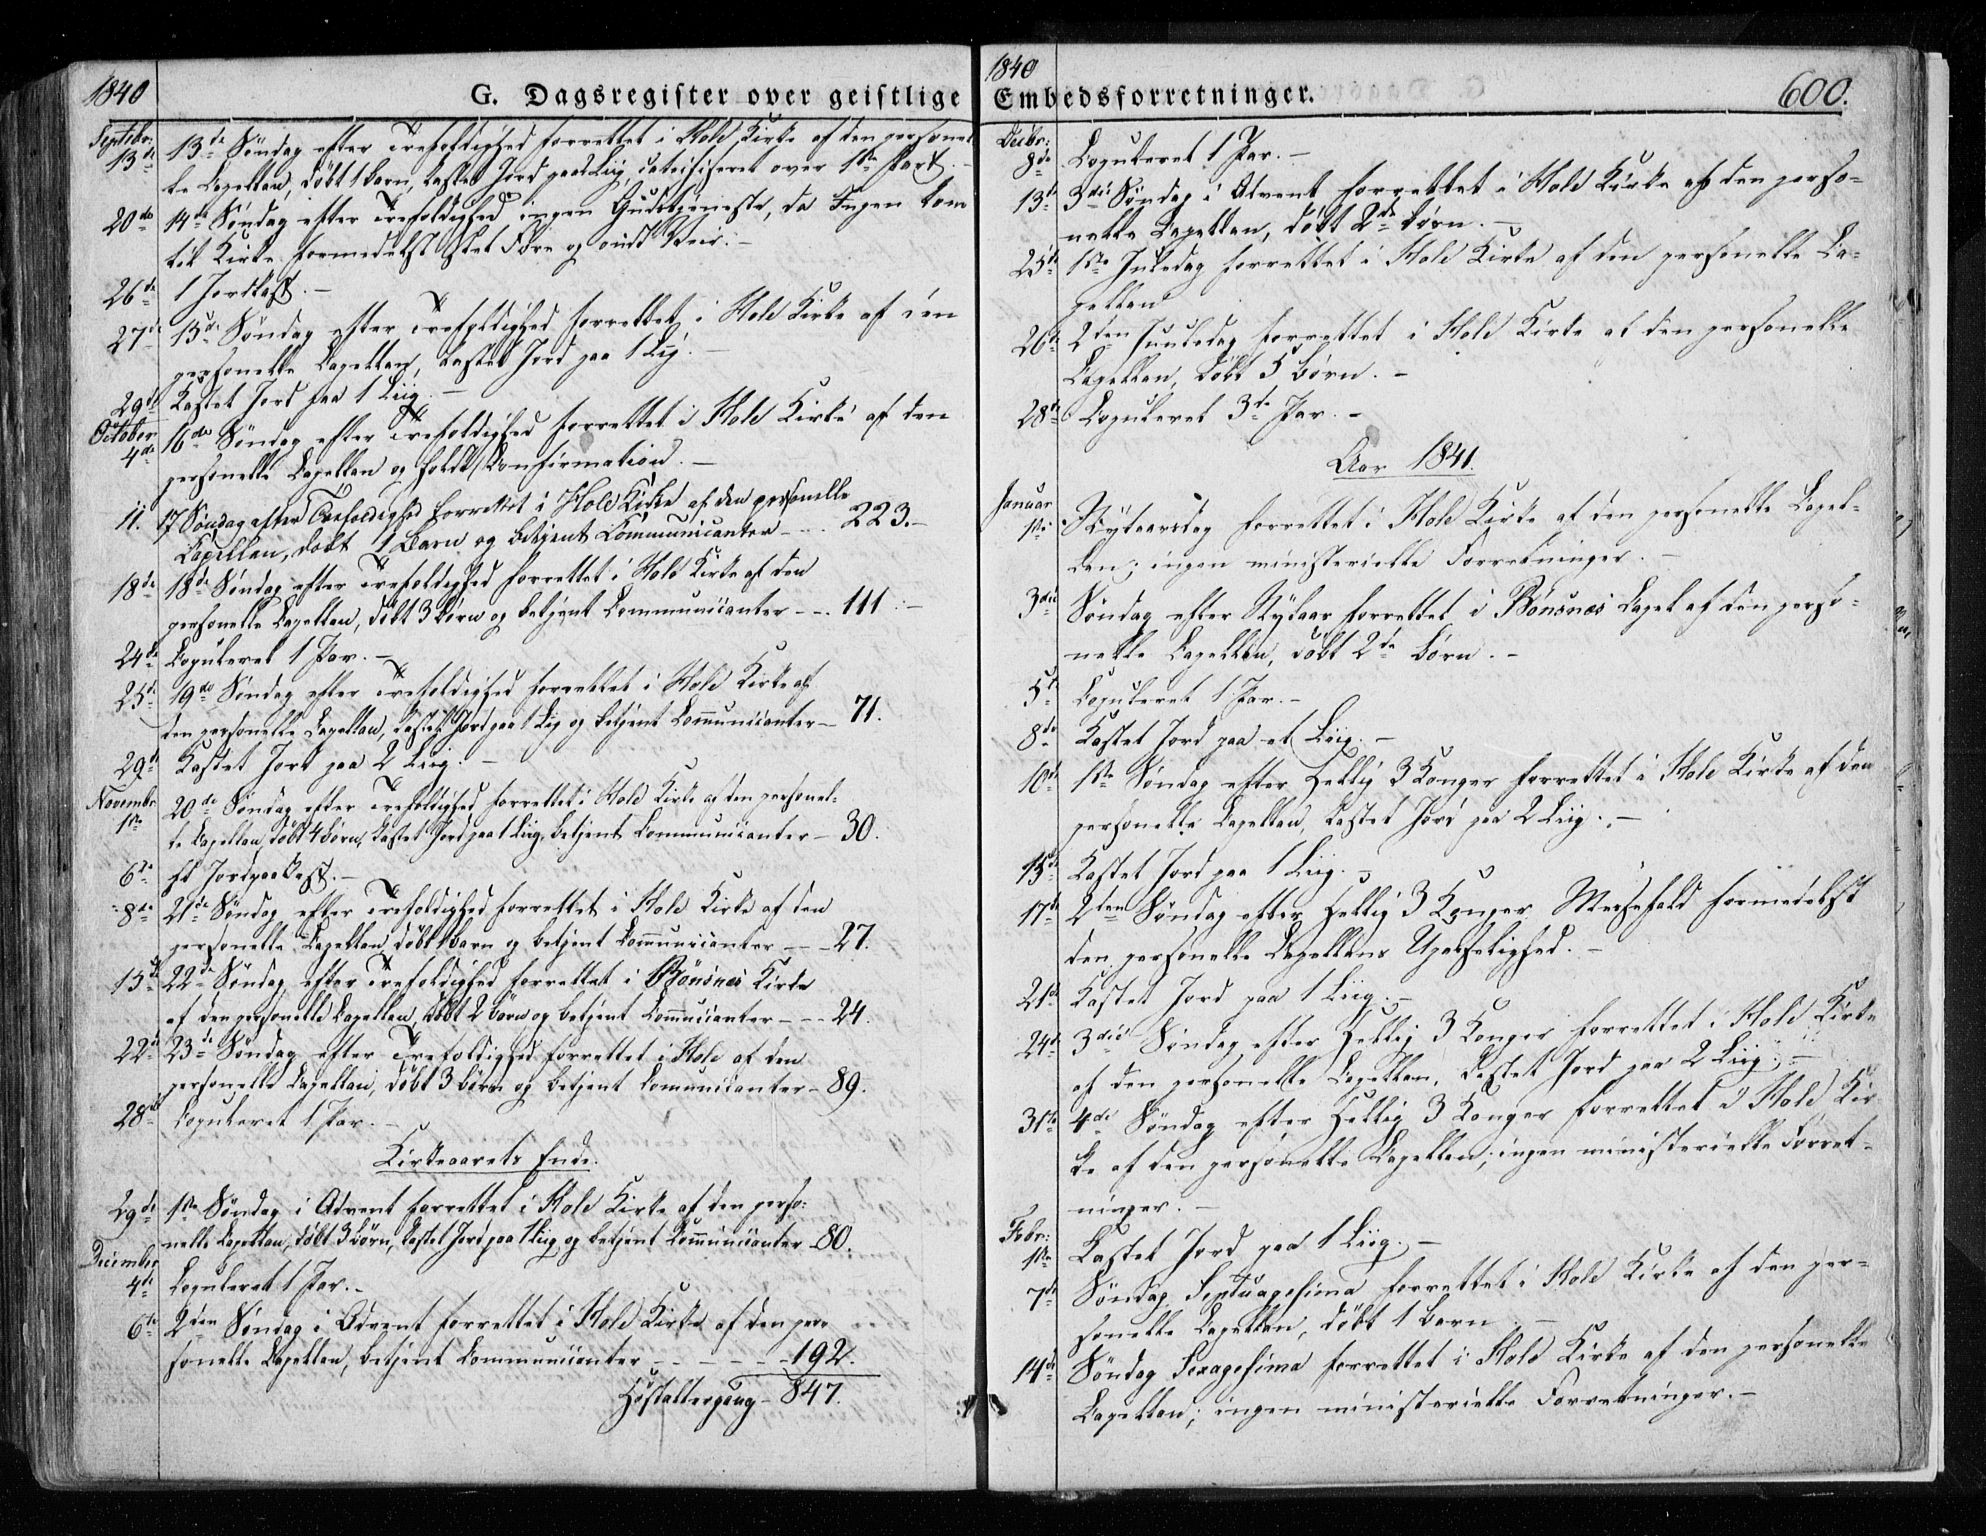 1840
G. Dagsregister over geistlige
Septbr: 13de 13de Søndag efter Trefoldighed forrettet i Hole Kirke af den personel-
le Capellan, døbt 1 barn, kastet Jord paa Liig, catechiseret over 1ste Part. -
20de 14de Søndag efter Trefoldighed ingen Gudstjeneste, da Ingen kom
til Kirke formedelst slet Føre og ondt Veir. -
26de 1 Jordkast. -
27de 15de Søndag efter Trefoldighed forrettet i Hole Kirke af den
personelle Capellan, kastet Jord paa 1 Liig. -
29de Kastet Jord paa 1 Liig. -
October 4de 16de Søndag efter Trefoldighed forrettet i Hole Kirke af den
personelle Capellan og holdt Confirmation. -
11. 17 Søndag efter Trefoldighed forrettet i Hole Kirke af den personelle
Capellan, døbt 1 Barn og betjent Communicanter - - 223. -
18de 18de Søndag efter Trefoldighed forrettet i Hole Kirke af den
personelle Capellan, døbt 3 børn og betjent Communicanter - - 111 -
24de Copuleret 1 Par. -
25de 19de Søndag efter Trefoldighed forrettet i Hole Kirke af
den personelle Capellan, kastet Jord paa 1 Liig og betjent Communicanter - 71.
29de Kastet Jord paa 2 Liig. -
Novembr. 1ste 20de Søndag efter Trefoldighed forrettet i Hole Kirke af den personel-
le Capellan, døbt 4 børn, kastet Jord paa 1 Liig, betjent Communicanter - 30.
6te
8de 21de Søndag efter Trefoldighed forrettet i Hole Kirke af den
personelle Capellan, døbt 1 barn og betjent Communicanter - - 27.
15de 22de Søndag efter Trefoldighed forrettet i Bönsnes Kirke
af den personelle Capellan, døbt 2 børn og betjent Communicanter - - - 24.
22de 23de Søndag efter Trefoldighed forrettet i Hole af den
personelle Capellan, døbt 3 børn og betjent Communicanter - 89.
28de Copuleret 1 Par. -
Kirkeaarets Ende.
29de 1ste Søndag i Advent forrettet i Hole Kirke af den perso-
nelle Capellan, døbt 3 børn, kastet Jord paa 1 Liig og betjent Communicanter - 80.
December 4de Copuleret 1 Par. -
6te 2den Søndag i Advent forrettet i Hole Kirke af den per-
sonelle Capellan, betjent Communicanter - - - - - - 192.
Høstaltergang - 847.
1840
Embedsforretninger.
600.
Decbr: 8de Copuleret 1 Par. -
13de 3die Søndag i Advent forrettet i Hole Kirke af den perso-
nelle Capellan, døbt 2de børn. -
25de 1ste Juledag forrettet i Hole Kirke af den personelle Ca-
pellan
26de 2den Juuledag forrettet i Hole Kirke af den personelle
Capellan, døbt 5 børn. -
28de Copuleret 3de Par. -
Aar 1841.
Januar 1ste Nytaarsdag forrettet i Hole Kirke af den personelle Capel-
lan; ingen ministerielle Forretninger. -
3die Søndag efter Nytaar forrettet i Bönsnes Capel af den perso-
nelle Capellan, døbt 2de børn. -
5te Copuleret 1 Par. -
8de Kastet Jord paa et Liig. -
10de 1ste Søndag efter Hellig 3 Konger forrettet i Hole Kirke af den
personelle Capellan, kastet Jord paa 2 Liig. -
15de Kastet Jord paa 1 Liig. -
17de 2den Søndag efter Hellig 3 Konger Messefald formedelst
den personelle Capellans Upasselighed. -
21de Kastet Jord paa 1 Liig. -
24de 3die Søndag efter Hellig 3 Konger forrettet i Hole Kirke
af den personelle Capellan, kastet Jord paa 2 Liig. -
31te 4de Søndag efter Hellig 3 Konger forrettet i Hole Kir-
ke af den personelle Capellan; ingen ministerielle Forret-
ninger. -
Febr: 1ste Kastet Jord paa 1 Liig. -
7de Søndag Septuagesima forrettet i Hole Kirke af den per-
sonelle Capellan, døbt 1 barn. -
14de Søndag Sexagesima forrettet i Hole Kirke af den personelle
Capellan; ingen ministerielle Forretninger. -